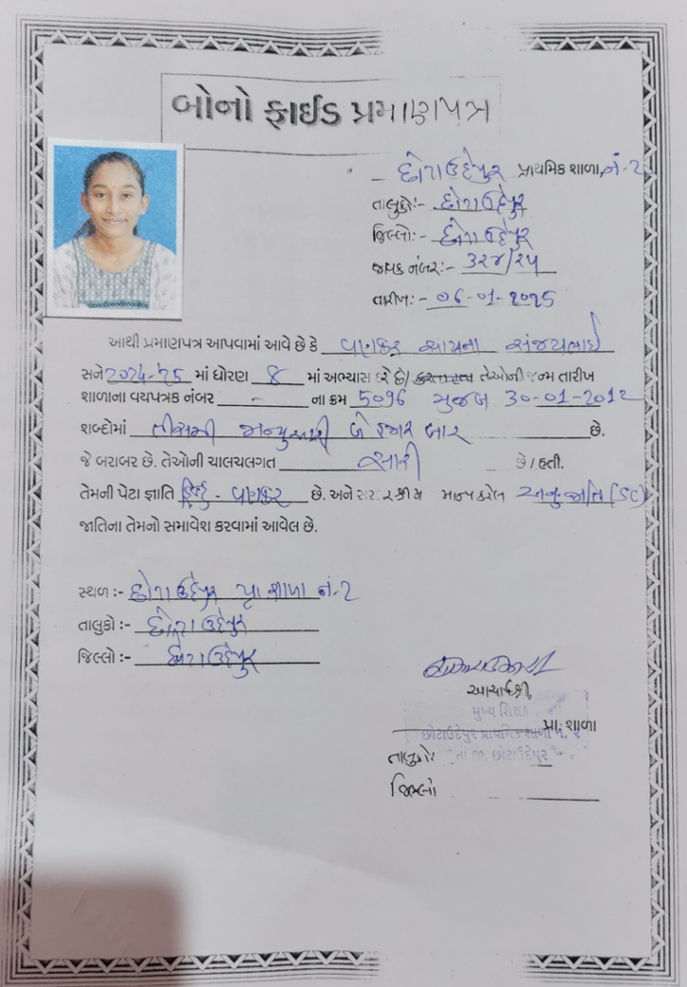 બોનો ફાઈડ પ્રમાણપત્ર
છોટાઉદેપુર પ્રાથમિક શાળા, નં-2
તાલુકો:- છોટાઉદેપુર
જિલ્લો:- છોટાઉદેપુર
જાવક નંબર:- ૩૨૪/૨૫
તારીખ:- ૦6-૦1-૨૦૨5
આથી પ્રમાણપત્ર આપવામાં આવે છે કે વણકર સંજયભાઈ
સને 2024-'25 માં ધોરણ 8 માં અભ્યાસ કરે છે/ તેઓની જન્મ તારીખ
શાળાના વયપત્રક નંબર - ના ક્રમ 5096 મુજબ 30-01-2012
શબ્દોમાં ત્રીસમી જાન્યુઆરી બે હજાર બાર છે.
જે બરાબર છે. તેઓની ચાલચલગત સારી છે / હતી.
તેમની પેટા જ્ઞાતિ હિન્દુ - વણકર છે. અને સરકારશ્રીએ માન્ય કરેલ અનુ.જાતિ (SC)
જાતિના તેમનો સમાવેશ કરવામાં આવેલ છે.
સ્થળ :- છોટાઉદેપુર પ્રા શાળા નં-2
તાલુકો :- છોટાઉદેપુર
જિલ્લો :- છોટાઉદેપુર
આચાર્યશ્રી,
મુખ્ય શિક્ષક
પ્રા. શાળા
છોટાઉદેપુર પ્રાથમિક શાળા નં. ૨
તાલુકો:
તા.જી. છોટાઉદેપુર
જિલ્લો